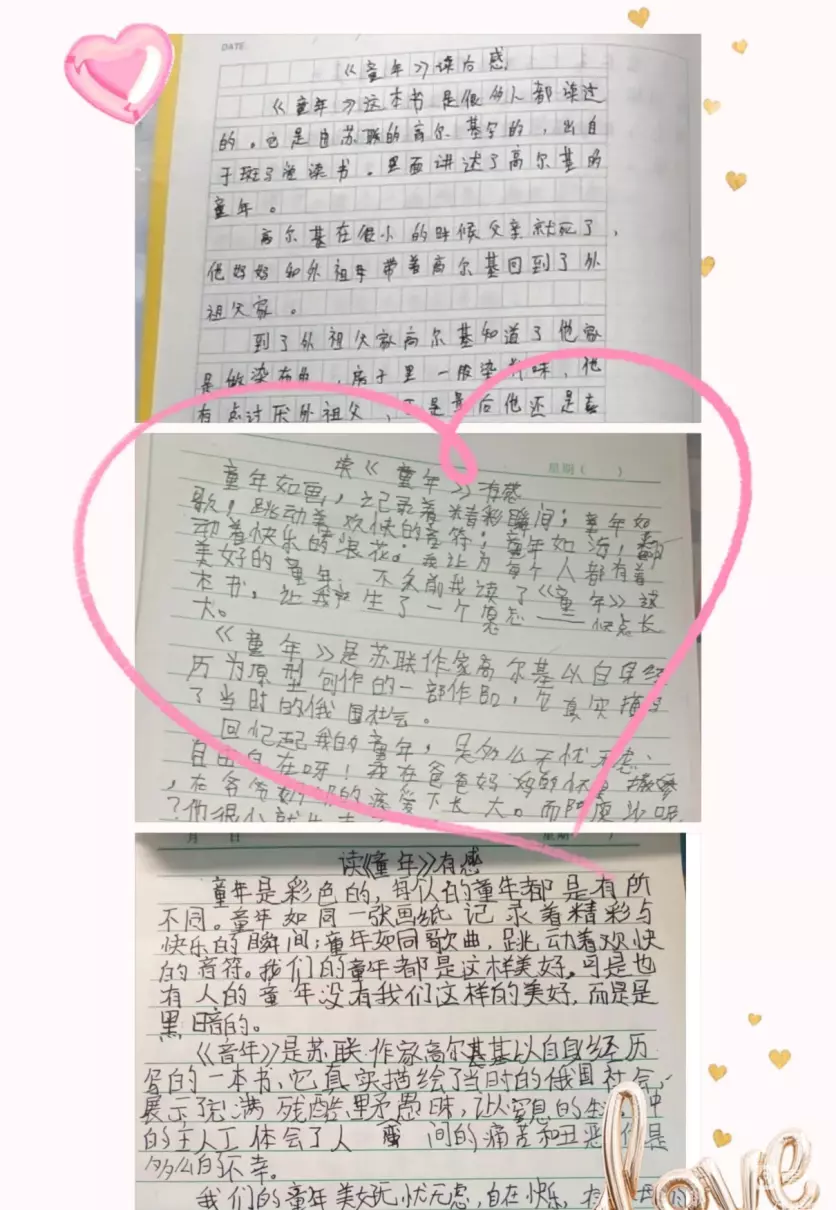 DATE
《童年》读后感
《童年》这本书是很多人都读过
的。它是由苏联的高尔基写的，出自
于班级爱读书。里面讲述了高尔基的
童年。
高尔基在很小的时候父亲就死了，
他妈妈和外祖母带着高尔基回到了外
祖父家。
到了外祖父家高尔基知道了他家
是做染布的，房子里一股染料味，他
有点讨厌外祖父，可是最后他还是
星期（ ）
读《童年》有感
童年如画，记录着精彩瞬间；童年如
歌，跳动着欢快的音符；童年如海，翻
动着快乐的浪花。我认为每个人都有着
美好的童年，不久前我读了《童年》这
本书，让我产生了一个愿望——快点长
大。
《童年》是苏联作家高尔基以自身经
历为原型创作的一部作品，它真实描写
了当时的俄国社会。
回忆起我的童年，是多么无忧无虑、
自由自在呀！我在爸爸妈妈的怀里
，在爷爷奶奶的疼爱下长大。而阿廖沙呢
？他很小就
月 日 星期
读《童年》有感
童年是彩色的，每个人的童年都是有所
不同。童年如同一张画纸记录着精彩与
快乐的瞬间；童年如同歌曲，跳动着欢快
的音符。我们的童年都是这样美好，可是也
有人的童年没有我们这样的美好，而是是
黑暗的。
《童年》是苏联作家高尔基基以自身经历
写的一本书、它真实描绘了当时的俄国社会，
展示了充满残酷、野蛮愚昧，让人窒息的生 中
的主人工体会了人 间的痛苦和丑恶 是
多么的不幸。
我们的童年美好无忧无虑，自在快乐，
love